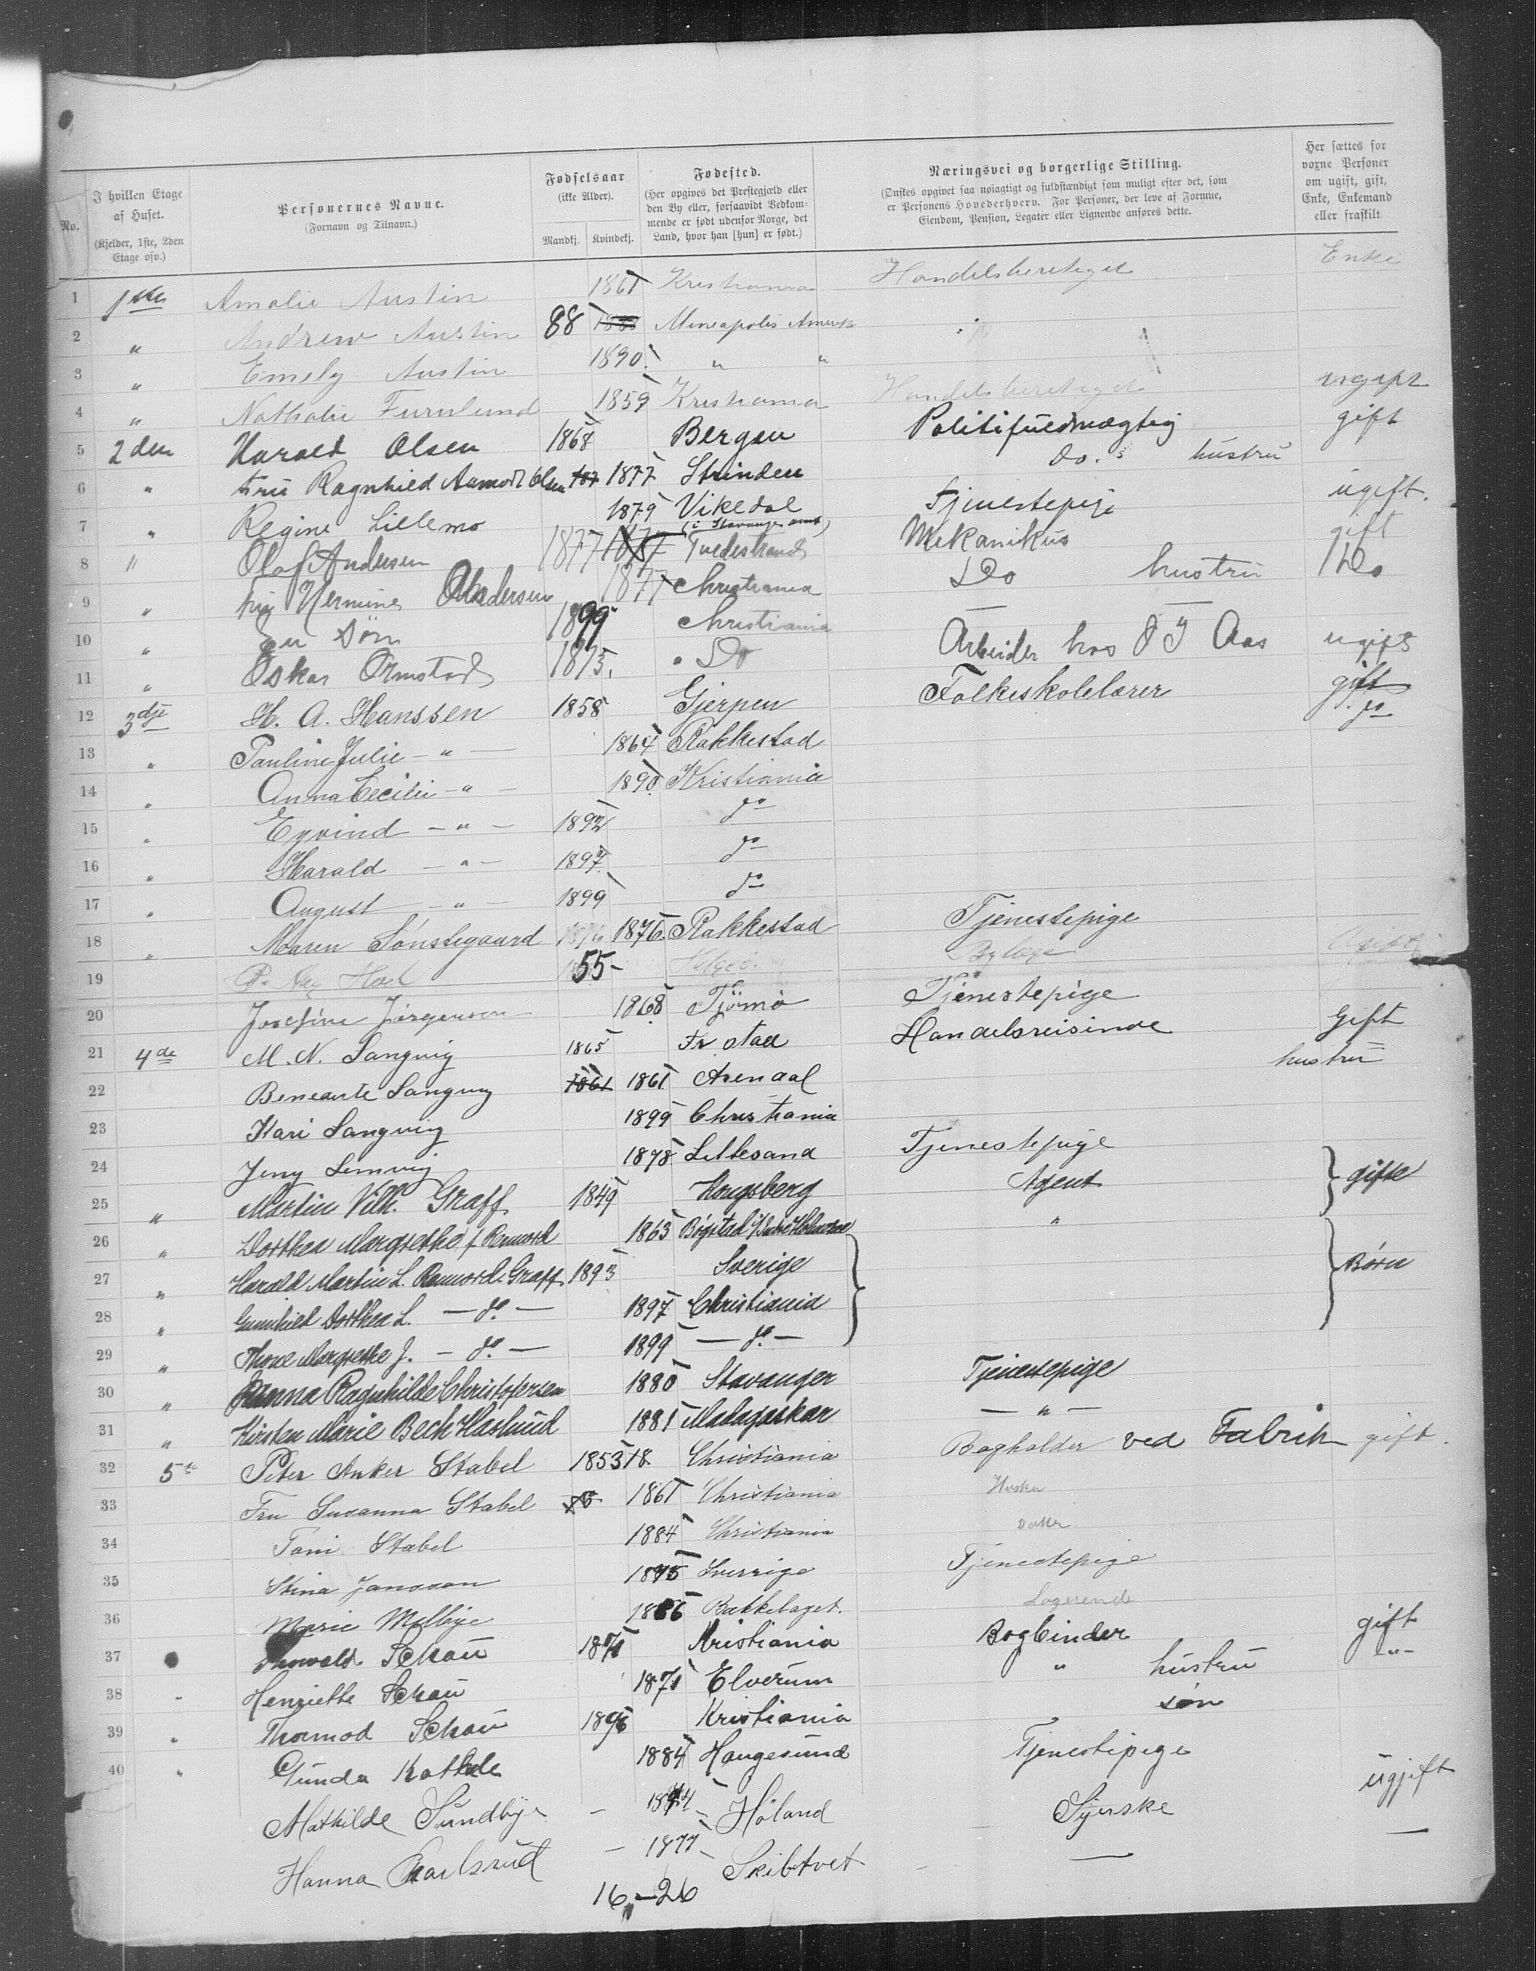 No. | I hvilken Etage af Huset. (Kjelder, 1ste, 2den Etage osv.) | Personernes Navne. (Fornavn og Tilnavn.) | Fødselsaar (ikke Alder). Mandkj. Kvindekj. | Fødested. (Her opgives det Prestegjæld eller den By eller, forsaavidt Vedkommende er født udenfor Norge, det Land, hvor han [hun] er født.) | Næringsvei og borgerlige Stilling. (Ønskes opgivet saa nøiagtigt og fuldstændigt som muligt efter det, som er Personens Hovederhverv. For Personer, der leve af Formue, Eiendom, Pension, Legater eller Lignende anføres dette. | Her sættes for voxne Personer om ugift, gift, Enke, Enkemand eller fraskilt
1 1ste Amalie Austin 1861 Kristiania Handelsberetiget Enke
2 " Andrew Austin 88 1888 Mineapolis Amerika
3 " Emely Austin 1890 " "
4 " Nathalie Furulund 1859 Kristiania Handelsberetiget ugift
5 2den Harald Olsen 1868 Bergen Politifuldmægtig gift
6 " Fru Ragnhild Aamodt Olsen 187 1877 Strinden do.s hustru
7 " Regine Lillemo 1879 Vikedal (i Stavanger amt) Tjenestepige ugift.
8 " Olaf Andersen 1877 Tvedestrand Mekanikus gift
9 " Fru Hermine Andersen 1877 Christiania Do hustru Do
10 " En Søn 1899 Christiania — —
11 " Oskar Ormstad 1873. " Do Arbeider hos O J Aas ugift
12 3dje H. A. Hanssen 1858 Gjerpen Folkeskolelærer gift
13 " Pauline Julie — " — 1864 Rakkestad do
14 " Anna Cecilie — " — 1890. Kristiania
15 " Eyvind — " — 1892 do
16 " Harald — " — 1897 do
17 " August — " — 1899 do
18 " Maren Sønstegaard 1876 1876. Rakkestad Tjenestepige
19 55 —
20 Josefine Jørgensen 1868 Tjömö Tjenestepige
21 4de M. N. Langvig 1865 Fr.stad Handelsreisinde Gift
22 Benedicte Langvig 1861 1861 Arendal hustru
23 Kari Langvig 1899 Christiania
24 Jeny Lemvig 1878 Lillesand Tjenestepige
25 " Martin Vilh. Graff 1849 Kongsberg Agent gifte
26 " Dorthea Margrethe f. Remvord 1863 "
27 " Harald Martin L. Remvord Graff 1893 Sverige Børn
28 " Gunhild Dorthea L. — do — 1897 Christiania
29 " Thone Margrethe J. — do — 1899 — do —
30 " Hanna Ragnhilde Christofersen 1880 Stavanger Tjenestepige
31 " Kirsten Marie Bech Haslund 1881 Madagaskar — " —
32 5te Peter Anker Stabel 1853 18 Christiania Bogholder ved Fabrik gift.
33 Fru Susanna Stabel 1861 Christiania Hustru
34 Toni Stabel 1884 Christiania Datter
35 Stina Jansson 1875 Sverrige Tjenestepige
36 Marie Melbye 1886 Bækkelaget. Logerende
37 Thorvald Schau 1871 Kristiania Bogbinder gift
38 " Henriette Schau 1871 Elverum " hustru — " —
39 " Thormod Schau 1896 Kristiania søn
40 " Gunda Kathle 1884 Haugesund Tjenestepige
Mathilde Sundbye — 1874 — Höland Syerske ugift
Hanna Karlsrud — 1877 — Skibtvet — —
16 — 26